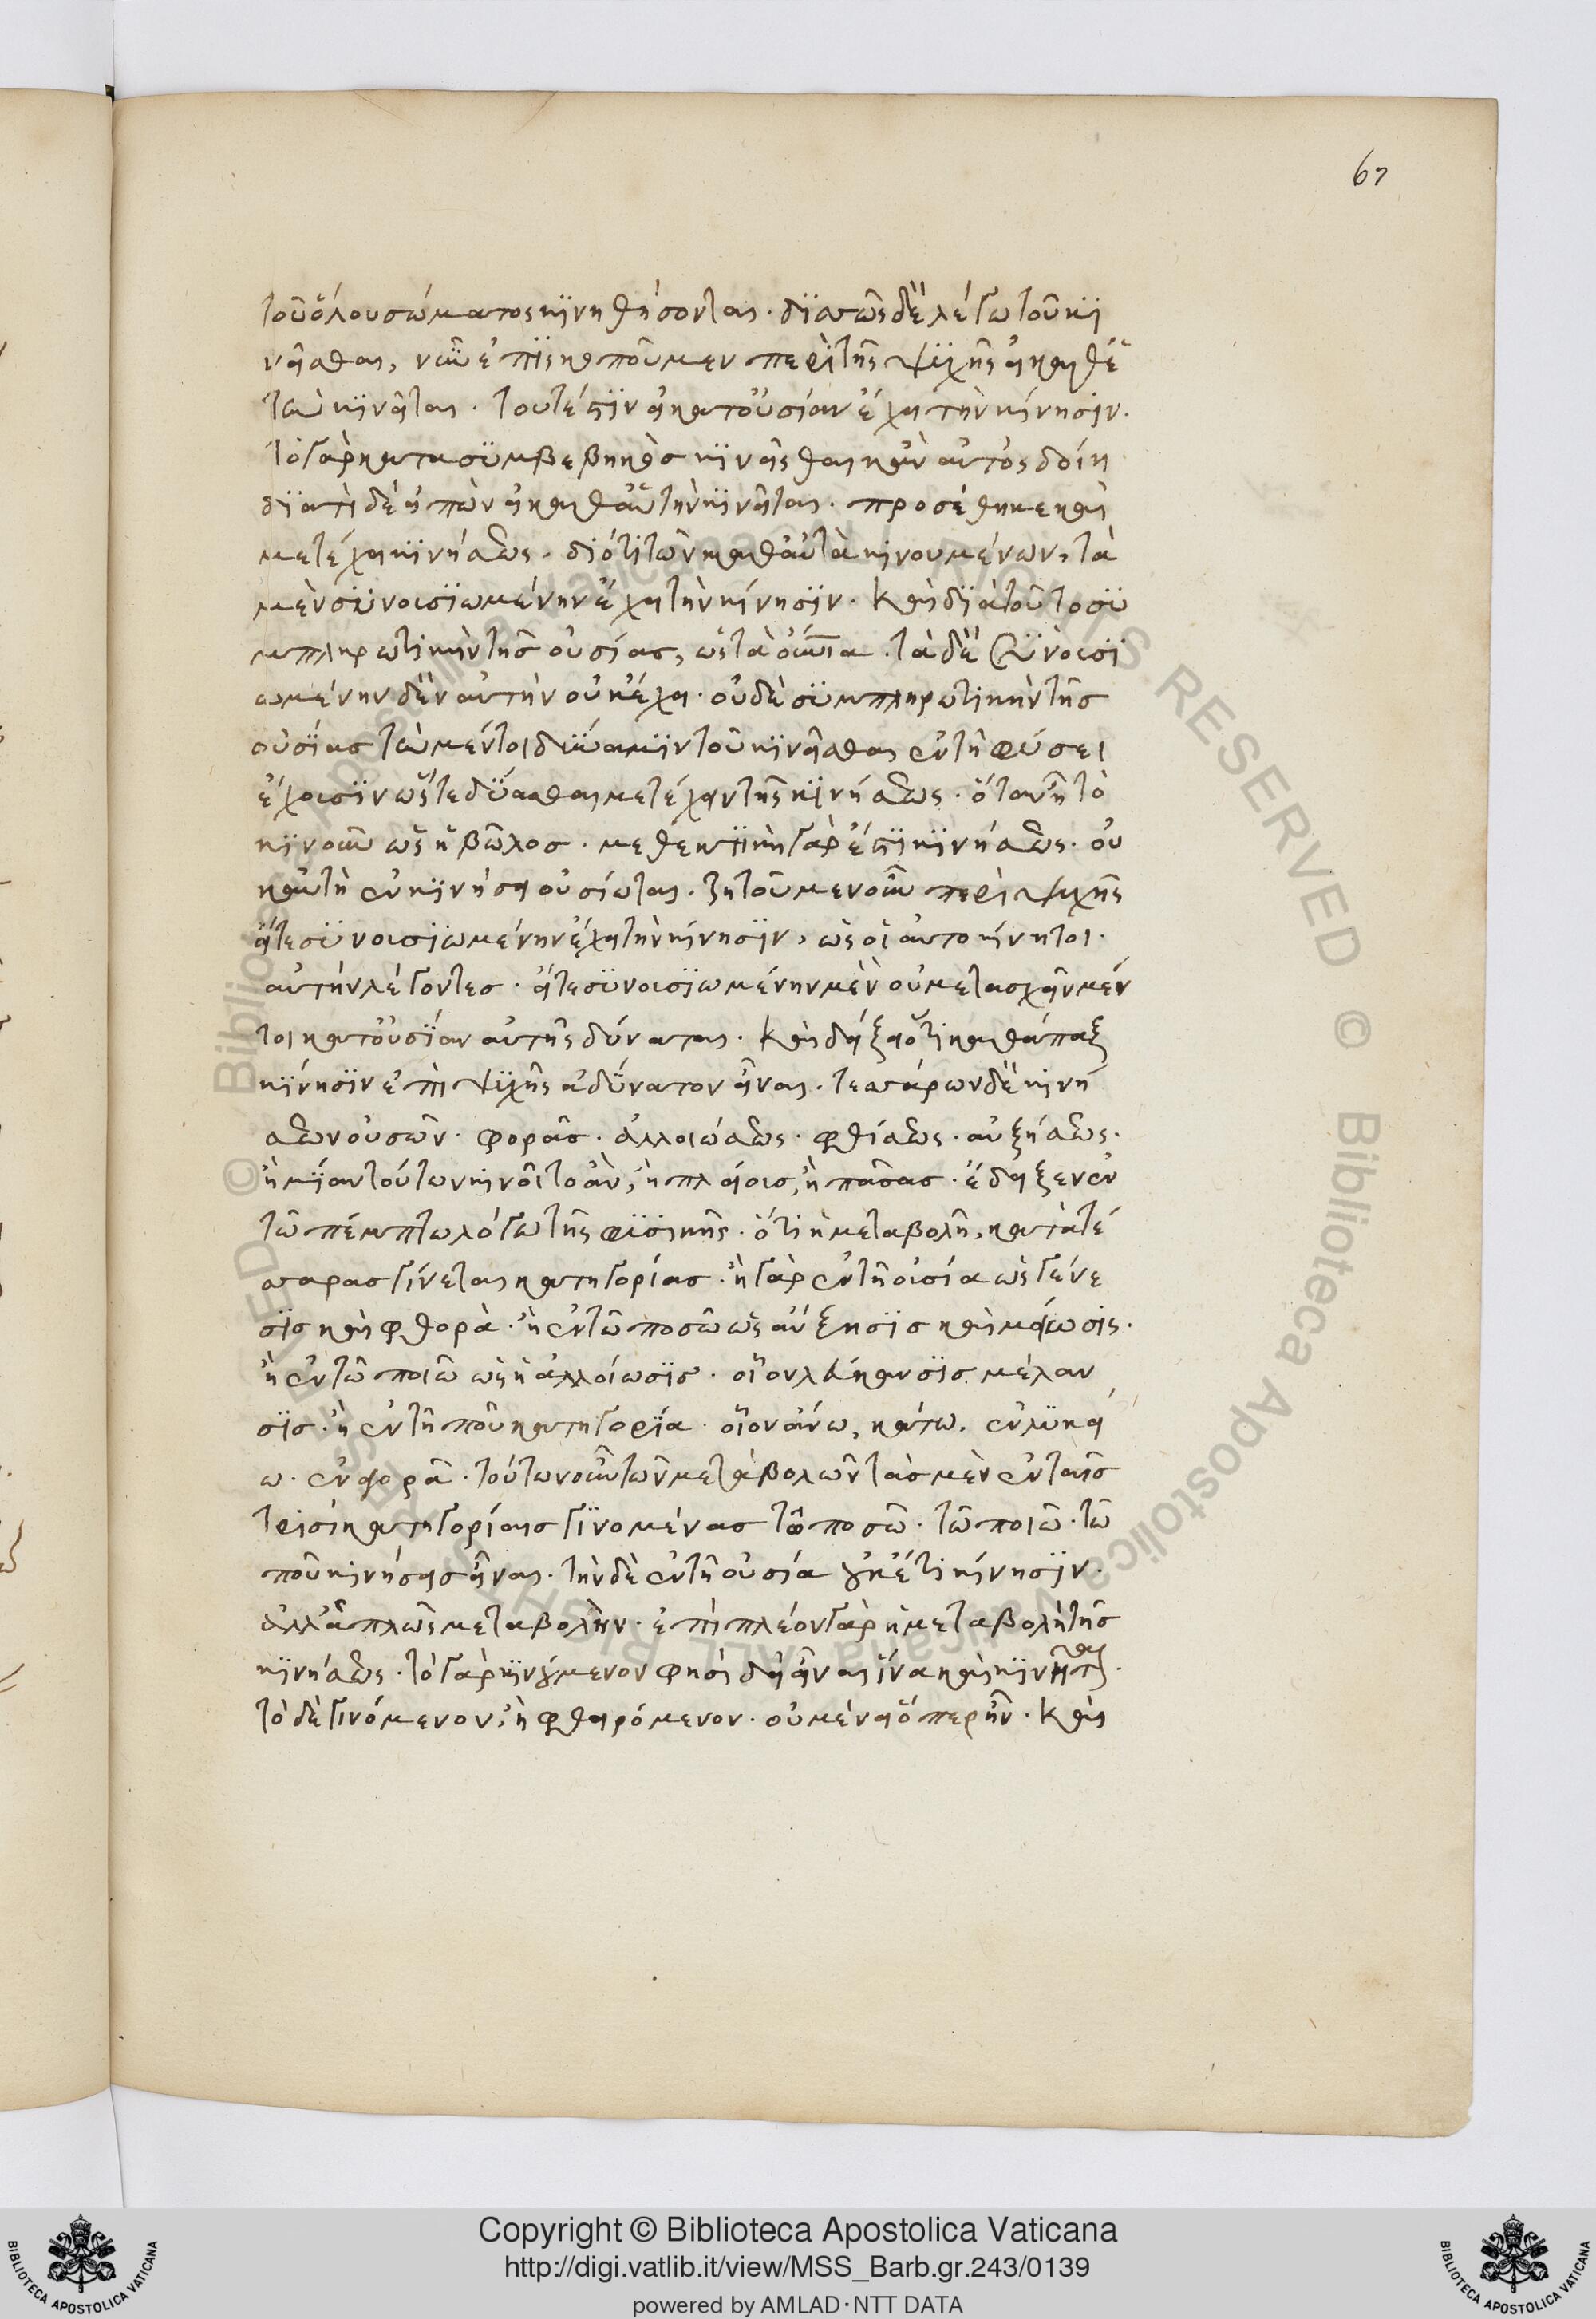 67
τοῦ ὅλου σώματος κινηθήσονται. διττῶς δὲ λέγω τοῦ κι
νεῖσθαι, νῦν ἐπισκοποῦμεν περὶ τῆς ψυχῆς εἰ καθ' ἑ
αυτὴν κινεῖται. τουτέστιν εἰ κατ' οὐσίαν ἔχει τὴν κίνησιν.
τὸ γὰρ κατὰ συμβεβηκὸς κινεῖσθαι κἂν αὐτὸς δοίη
διατί δὲ εἰπὼν εἰ καθ' αὑτὴν κινεῖται. προσέθηκε καὶ
μετέχει κινήσεως. διότι τῶν καθ' αὑτὰ κινουμένων, τὰ
μὲν συνουσιωμένην ἔχει τὴν κίνησιν. καὶ διὰ τοῦτο συ
μπληρωτικὴν τῆς οὐσίας, ὡς τὰ οὐράνια. τὰ δὲ συνουσι
ωμένην δὲν αὐτὴν οὐκ ἔχει. οὐδὲ συμπληρωτικὴν τῆς
οὐσίας τὴν μέντοι δύναμιν τοῦ κινεῖσθαι ἐν τῇ φύσει
ἔχουσιν ὥστε δύνασθαι μετέχειν τῆς κινήσεως. ὅταν ᾖ τὸ
κινοῦν ὡς ἡ βῶλος. μεθεκτικὴ γὰρ ἐστὶ κινήσεως. οὐ
κ αὐτῇ ἐν κινήσει οὐσίωται. ζητοῦμεν οὖν περὶ ψυχῆς
εἴτε συνουσιωμένην ἔχει τὴν κίνησιν, ὡς οἱ αὐτοκίνητοι.
αὐτὴν λέγοντες. εἴτε συνουσιωμένην μὲν οὐ μετασχεῖν μέν
τοι κατ' οὐσίαν αὐτῆς δύναται. καὶ δείξει ὅτι καθάπαξ
κίνησιν ἐπὶ ψυχῆς ἀδύνατον εἶναι. τεσσάρων δὲ κινή
σεων οὐσῶν. φορᾶς. ἀλλοιώσεως. φθίσεως. αὐξήσεως.
ἢ μίαν τούτων κινοῖτο ἂν, ἢ πλείους, ἢ πάσας. ἔδειξεν ἐν
τῷ πέμπτω λόγω τῆς φυσικῆς. ὅτι ἡ μεταβολὴ, κατὰ τέ
σσαρας γίνεται κατηγορίας. ἢ γὰρ ἐν τῇ οὐσία ὡς γένε
σις καὶ φθορὰ. ἢ ἐν τῷ ποσῶ ὡς αὔξησις καὶ μείωσις.
ἢ ἐν τῷ ποιῶ ὡς ἡ ἀλλοίωσις. οἷον λεύκανσις μέλαν
σις. ἢ ἐν τῇ ποῦ κατηγορία. οἷον ἄνω, κάτω. ἐν λυκεί
ω. ἐν ἀγορᾶ. τούτων οὖν τῶν μεταβολῶν τὰς μὲν ἐν ταῖς
τρισὶ κατηγορίαις γινομένας τῷ ποσῶ. τῷ ποιῶ. τῷ
ποῦ κινήσεις εἶναι. τὴν δὲ ἐν τῇ οὐσία οὐκέτι κίνησιν.
ἀλλ' ἁπλῶς μεταβολὴν. ἐπὶ πλέον γὰρ ἡ μεταβολὴ τῆς
κινήσεως. τὸ γὰρ κινούμενον φησὶ δεῖ εἶναι ἵνα καὶ κινῆται.
τὸ δὲ γινόμενον, ἢ φθειρόμενον. οὐ μένει ὅπερ ἦν. καὶ
Copyright © Biblioteca Apostolica Vaticana
http://digi.vatlib.it/view/MSS_Barb.gr.243/0139
powered by AMLAD·NTT DATA